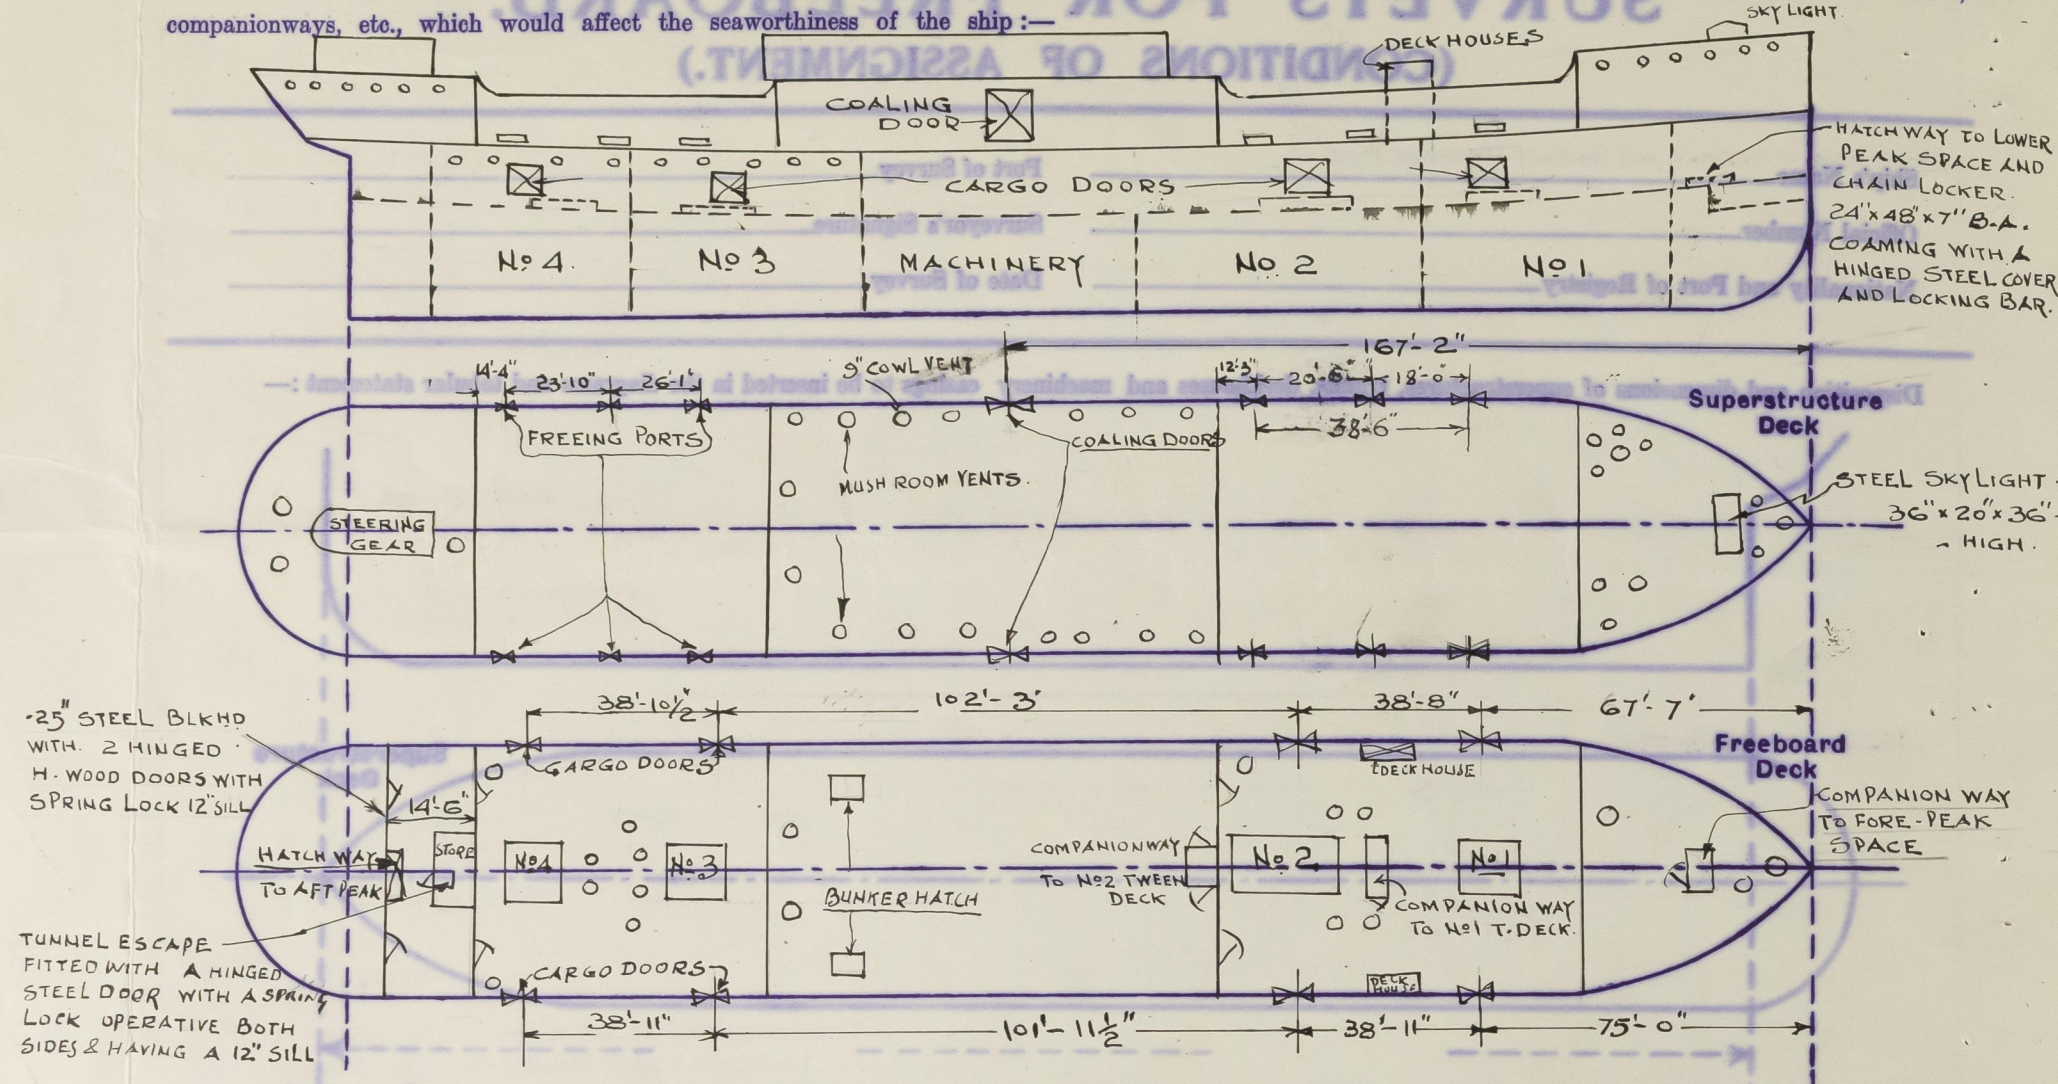 companionways, etc., which would affect the seaworthiness of the ship :—
SKY LIGHT.
DECK HOUSES
COALING
DOOR
CARGO DOORS
HATCHWAY TO LOWER
PEAK SPACE AND
CHAIN LOCKER.
24"x48"x7" B.A.
COAMING WITH A
HINGED STEEL COVER
AND LOCKING BAR.
No 4.
No 3
MACHINERY
No 2
No 1
167'-2"
14'-4"
23'-10"
26'-1"
9" COWL VENT
12'-3"
20'-6"
18'-0"
38'-6"
FREEING PORTS
COALING DOORS
Superstructure
Deck
MUSHROOM VENTS.
STEERING
GEAR
STEEL SKYLIGHT
36"x 20"x 36"
- HIGH.
38'-10½"
102'-3"
38'-8"
67'-7"
.25" STEEL BLKHD
WITH 2 HINGED
H. WOOD DOORS WITH
SPRING LOCK 12" SILL
CARGO DOORS
DECK HOUSE
Freeboard
Deck
14'-6"
COMPANION WAY
TO FORE-PEAK
SPACE
HATCH WAY
TO AFT PEAK
STORE
No4
No 3
No 2
No 1
COMPANIONWAY
TO No2 TWEEN
DECK
BUNKER HATCH
COMPANION WAY
TO No1 T. DECK.
TUNNEL ESCAPE
FITTED WITH A HINGED
STEEL DOOR WITH A SPRING
LOCK OPERATIVE BOTH
SIDES & HAVING A 12" SILL
CARGO DOORS
DECK
HOUSE
38'-11"
101'-11½"
38'-11"
75'-0"